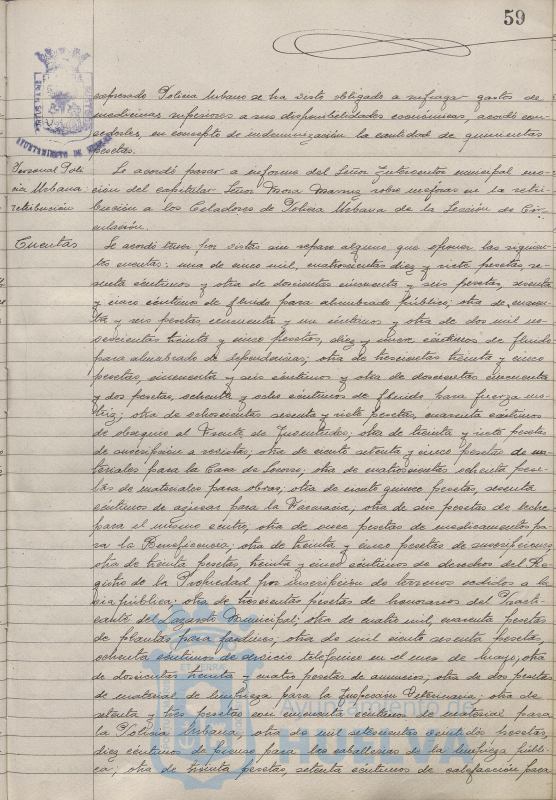 59
expresado Policia Urbano se ha visto obligado a sufragar gastos de
medicinas superiores a sus disponibilidades económicas, acordó con-
cederles, en concepto de indemnización la cantidad de quinientas
pesetas.
AYUNTAMIENTO DE HUELVA
Personal Poli
cia Urbana
retribución
Se acordó pasar a informe del Señor Interventor municipal mo-
ción del capitular Señor Mora sobre mejoras en la retri-
bución a los Celadores de Policia Urbana de la Sección de Cir-
culación.
Cuentas
Se acordó tener por vistas sin reparo alguno que oponer las siguien-
tes cuentas: una de cinco mil, cuatrocientas diez y siete pesetas se-
senta céntimos y otra de doscientas cincuenta y seis pesetas, sesenta
y cinco céntimos de fluido para alumbrado público; otra de cuaren-
ta y seis pesetas, cincuenta y un céntimos y otra de dos mil no-
vecientas treinta y cinco pesetas, diez y nueve céntimos de fluido
para alumbrado de dependencias; otra de trescientas treinta y cinco
pesetas, cincuenta y seis céntimos y otra de doscientas cincuenta
y dos pesetas, ochenta y ocho céntimos de fluido para fuerza mo-
triz; otra de ochocientas sesenta y siete pesetas, cuarenta céntimos
de obsequio al Frente de Juventudes; otra de treinta y siete pesetas
de suscripción a revistas; otra de ciento setenta y cinco pesetas de ma-
teriales para la Casa de Socorro; otra de cuatrocientas ochenta pese-
tas de materiales para obras; otra de ciento quince pesetas, sesenta
céntimos de azúcar para la Farmacia, otra de seis pesetas de leche
para el mismo centro, otra de once pesetas de medicamentos pa-
ra la Beneficencia; otra de treinta y cinco pesetas de suscripciones,
otra de treinta pesetas, treinta y cinco céntimos de derechos del Re-
gistro de la Propiedad por inscripción de terrenos cedidos a la
via pública; otra de trescientas pesetas de honorarios del Practi-
cante del Lazareto Municipal; otra de cuatro mil, cuarenta pesetas
de plantas para jardines, otra de mil ciento sesenta pesetas,
ochenta céntimos de servicio telefónico en el mes de Mayo; otra
de doscientas treinta y cuatro pesetas de anuncios; otra de dos pesetas
de material de limpieza para la Inspección Veterinaria; otra de
setenta y tres pesetas con cincuenta céntimos de material para
la Policia Urbana, otra de mil setecientas veintidós pesetas,
diez céntimos de pienso para las caballerias de la limpieza públi-
ca; otra de treinta pesetas, setenta céntimos de calefacción para
Ayuntamiento de
HUELVA